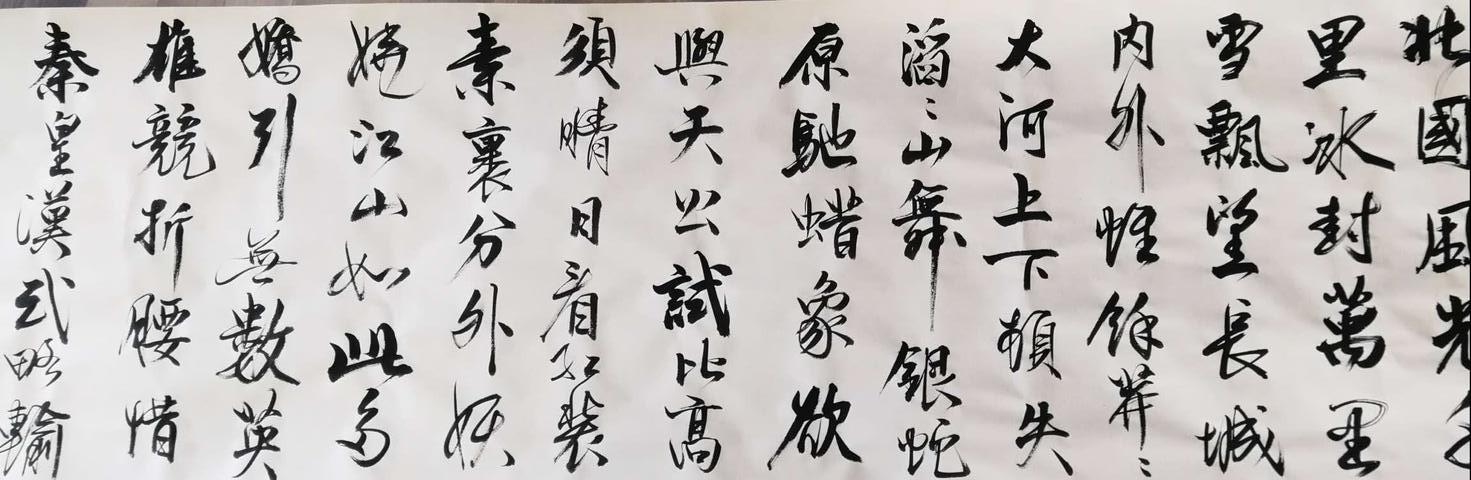 北國風光千
里冰封萬里
雪飄望長城
内外惟餘莽〻
大河上下頓失
滔〻山舞銀蛇
原馳蜡象欲
與天公試比高
須晴日看紅裝
素裹分外妖
嬈江山如此多
嬌引無數英
雄競折腰惜
秦皇漢武略輸